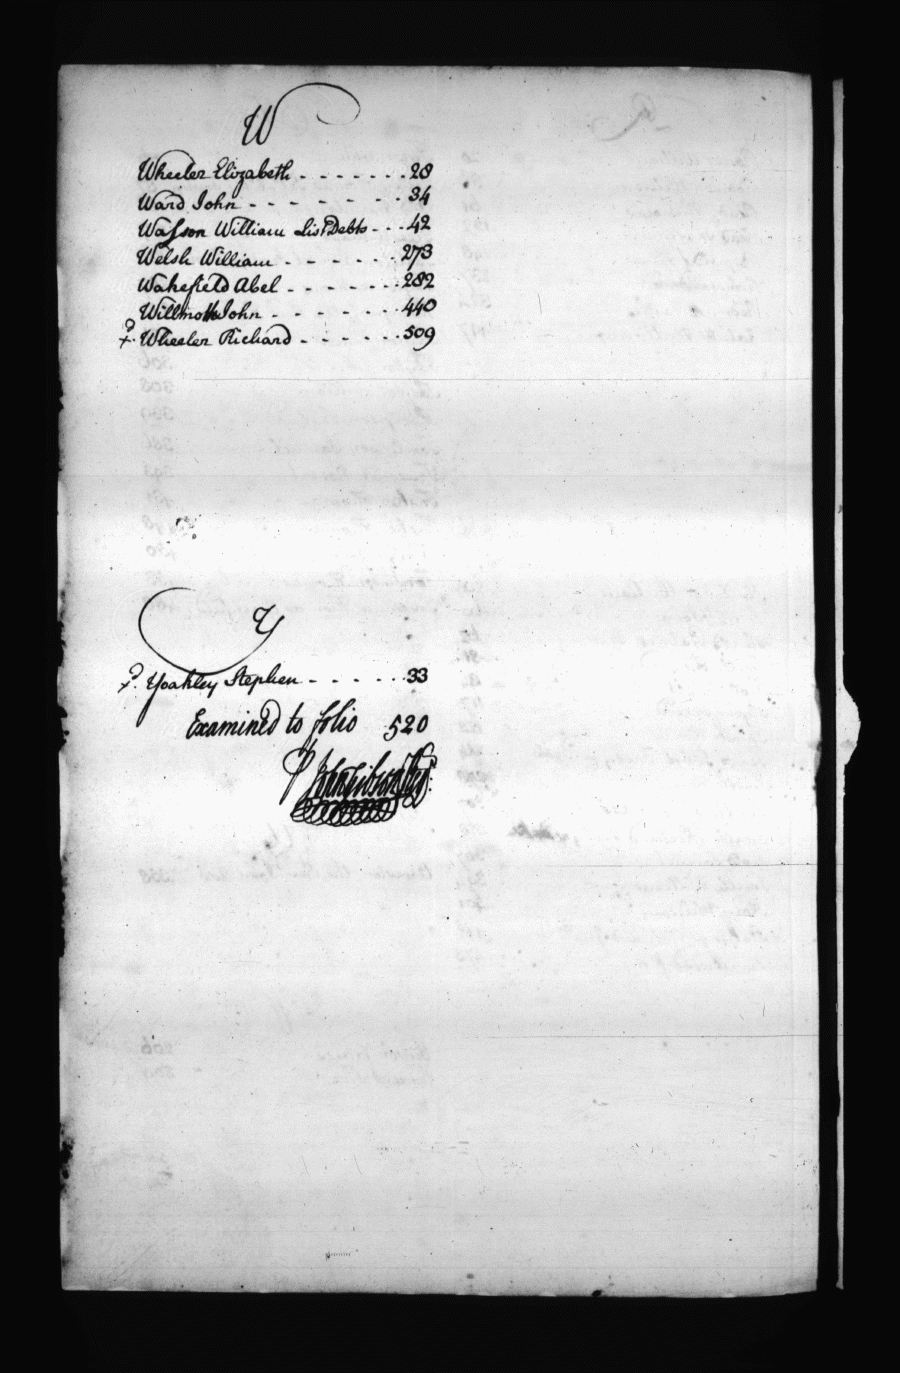 W
Wheeler Elizabeth - - - - - - - 28
Ward John - - - - - - - - 34
Wasson William List Debts - - - 42
Welsh William - - - - - - - 273
Wakefield Abel - - - - - - - 282
Willmott John - - - - - - - 440
?
x. Wheeler Richard - - - - - - 509
Y
?
x. Yoakley Stephen - - - - - - 33
Examined to folio 520
John Gibson